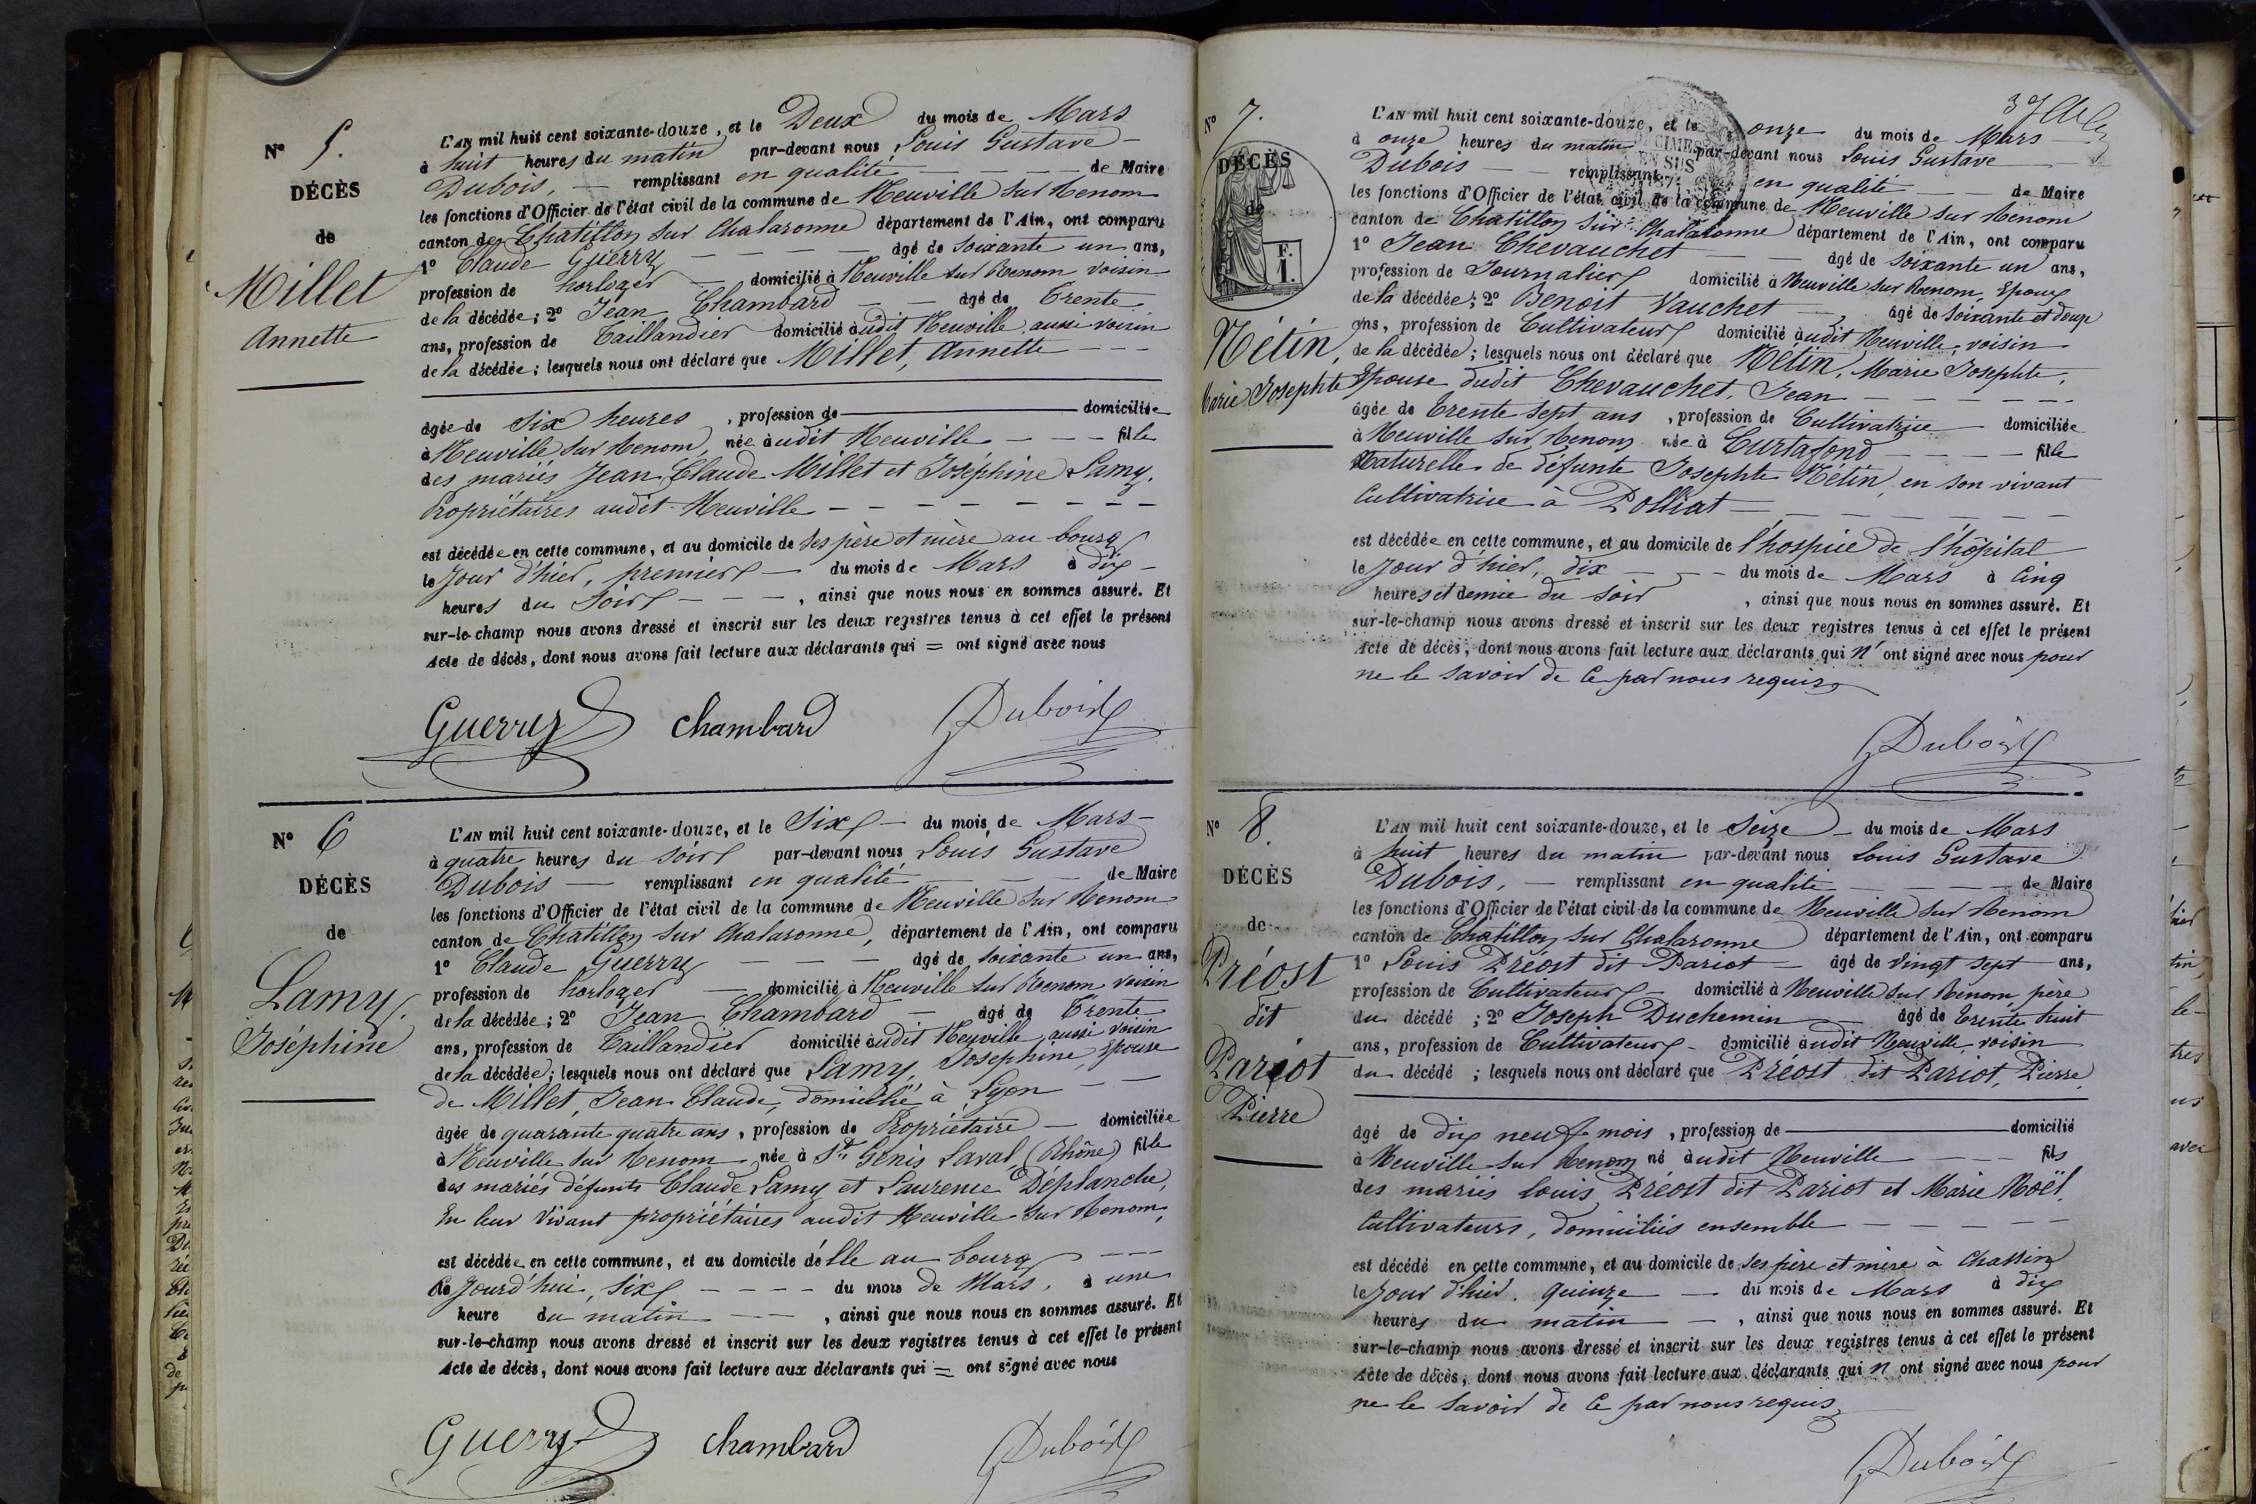 N° 5.
DÉCÈS
de
Millet
Annette
L'AN mil huit cent soixante-douze, et le Deux du mois de Mars
à huit heures du matin par-devant nous Louis Gustave
Dubois, remplissant en qualité de Maire
les fonctions d'Officier de l'état civil de la commune de Neuville sur Renom
canton de Chatillon sur Chalaronne département de l'Ain, ont comparu
1° Claude Guerry âgé de soixante un ans,
profession de horloger domicilié à Neuville sur Renom voisin
de la décédée; 2° Jean Chambard âgé de Trente
ans, profession de Taillandier domicilié audit Neuville, aussi voisin
de la décédée; lesquels nous ont déclaré que Millet, Annette
âgée de Six heures, profession de domiciliée
à Neuville sur Renom, née audit Neuville fille
des mariés Jean Claude Millet et Joséphine Lamy.
Propriétaires audit Neuville
est décédée en cette commune, et au domicile de ses père et mère au bourg
le Jour d'hier, premier du mois de Mars à dix
heures du Soir, ainsi que nous nous en sommes assuré. Et
sur-le-champ nous avons dressé et inscrit sur les deux registres tenus à cet effet le présent
Acte de décès, dont nous avons fait lecture aux déclarants qui = ont signé avec nous
Guerry chambard Dubois
N° 6
DÉCÈS
de
Lamy,
Joséphine
L'AN mil huit cent soixante-douze, et le Six du mois de Mars
à quatre heures du soir par-devant nous Louis Gustave
Dubois remplissant en qualité de Maire
les fonctions d'Officier de l'état civil de la commune de Neuville sur Renom
canton de Chatillon sur Chalaronne, département de l'Ain, ont comparu
1° Claude Guerry âgé de soixante un ans,
profession de horloger domicilié à Neuville sur Renom voisin
de la décédée; 2° Jean Chambard âgé de Trente
ans, profession de Taillandier domicilié audit Neuville aussi voisin
de la décédée; lesquels nous ont déclaré que Lamy, Joséphine, Epouse
de Millet, Jean Claude, domicilié à Lyon
âgée de quarante quatre ans, profession de Propriétaire domiciliée
à Neuville sur Renom, née à St Genis Laval, (Rhône) fille
des mariés défunts Claude Lamy et Laurence Déplanche,
En leur Vivant propriétaires audit Neuville sur Renom,
est décédée en cette commune, et au domicile d'elle au bourg
Ce Jourd'hui, Six du mois de Mars, à une
heure du matin, ainsi que nous nous en sommes assuré. Et
sur-le-champ nous avons dressé et inscrit sur les deux registres tenus à cet effet le présent
Acte de décès, dont nous avons fait lecture aux déclarants qui = ont signé avec nous
Guerry chambard Dubois
N° 7.
DÉCÈS
de
F.
I.
Nétin,
Marie Josephte
L'AN mil huit cent soixante-douze, et le onze du mois de Mars
à onze heures du matin par-devant nous Louis Gustave
Dubois remplissant en qualité de Maire
les fonctions d'Officier de l'état civil de la commune de Neuville sur Renom
canton de Chatillon sur Chalaronne département de l'Ain, ont comparu
1° Jean Chevauchet âgé de soixante un ans,
profession de Journalier domicilié à Neuville sur Renom, Epoux
de la décédée; 2° Benoit Vauchet âgé de Soixante et douze
ans, profession de Cultivateur domicilié audit Neuville, voisin
de la décédée; lesquels nous ont déclaré que Nétin, Marie Josephte,
Epouse dudit Chevauchet, Jean
âgée de Trente Sept ans, profession de Cultivatrice domiciliée
à Neuville sur Renom née à Curtafond fille
Naturelle de défunte Josephte Nétin, en son vivant
Cultivatrice à Polliat
est décédée en cette commune, et au domicile de l'hospice de l'hôpital
le Jour d'hier, dix du mois de Mars à Cinq
heures et demie du Soir, ainsi que nous nous en sommes assuré. Et
sur-le-champ nous avons dressé et inscrit sur les deux registres tenus à cet effet le présent
Acte de décès, dont nous avons fait lecture aux déclarants qui n'ont signé avec nous pour
ne le savoir de ce par nous requis
Dubois
N° 8.
DÉCÈS
de
Préost
dit
Pariot
Pierre
L'AN mil huit cent soixante-douze, et le Seize du mois de Mars
à huit heures du matin par-devant nous Louis Gustave
Dubois, remplissant en qualité de Maire
les fonctions d'Officier de l'état civil de la commune de Neuville sur Renom
canton de Chatillon sur Chalaronne département de l'Ain, ont comparu
1° Louis Préost dit Pariot âgé de Vingt sept ans,
profession de Cultivateur domicilié à Neuville sur Renom père
du décédé; 2° Joseph Duchemin âgé de Trente huit
ans, profession de Cultivateur domicilié audit Neuville voisin
du décédé; lesquels nous ont déclaré que Préost dit Pariot, Pierre
âgé de dix neuf mois, profession de domicilié
à Neuville sur Renom né audit Neuville fils
des mariés Louis Préost dit Pariot et Marie Noël,
Cultivateurs, domiciliés ensemble
est décédé en cette commune, et au domicile de ses père et mère à Chassin
le Jour d'hier, quinze du mois de Mars à dix
heures du matin, ainsi que nous nous en sommes assuré. Et
sur-le-champ nous avons dressé et inscrit sur les deux registres tenus à cet effet le présent
Acte de décès, dont nous avons fait lecture aux déclarants qui n ont signé avec nous pour
ne le savoir de ce par nous requis
Dubois